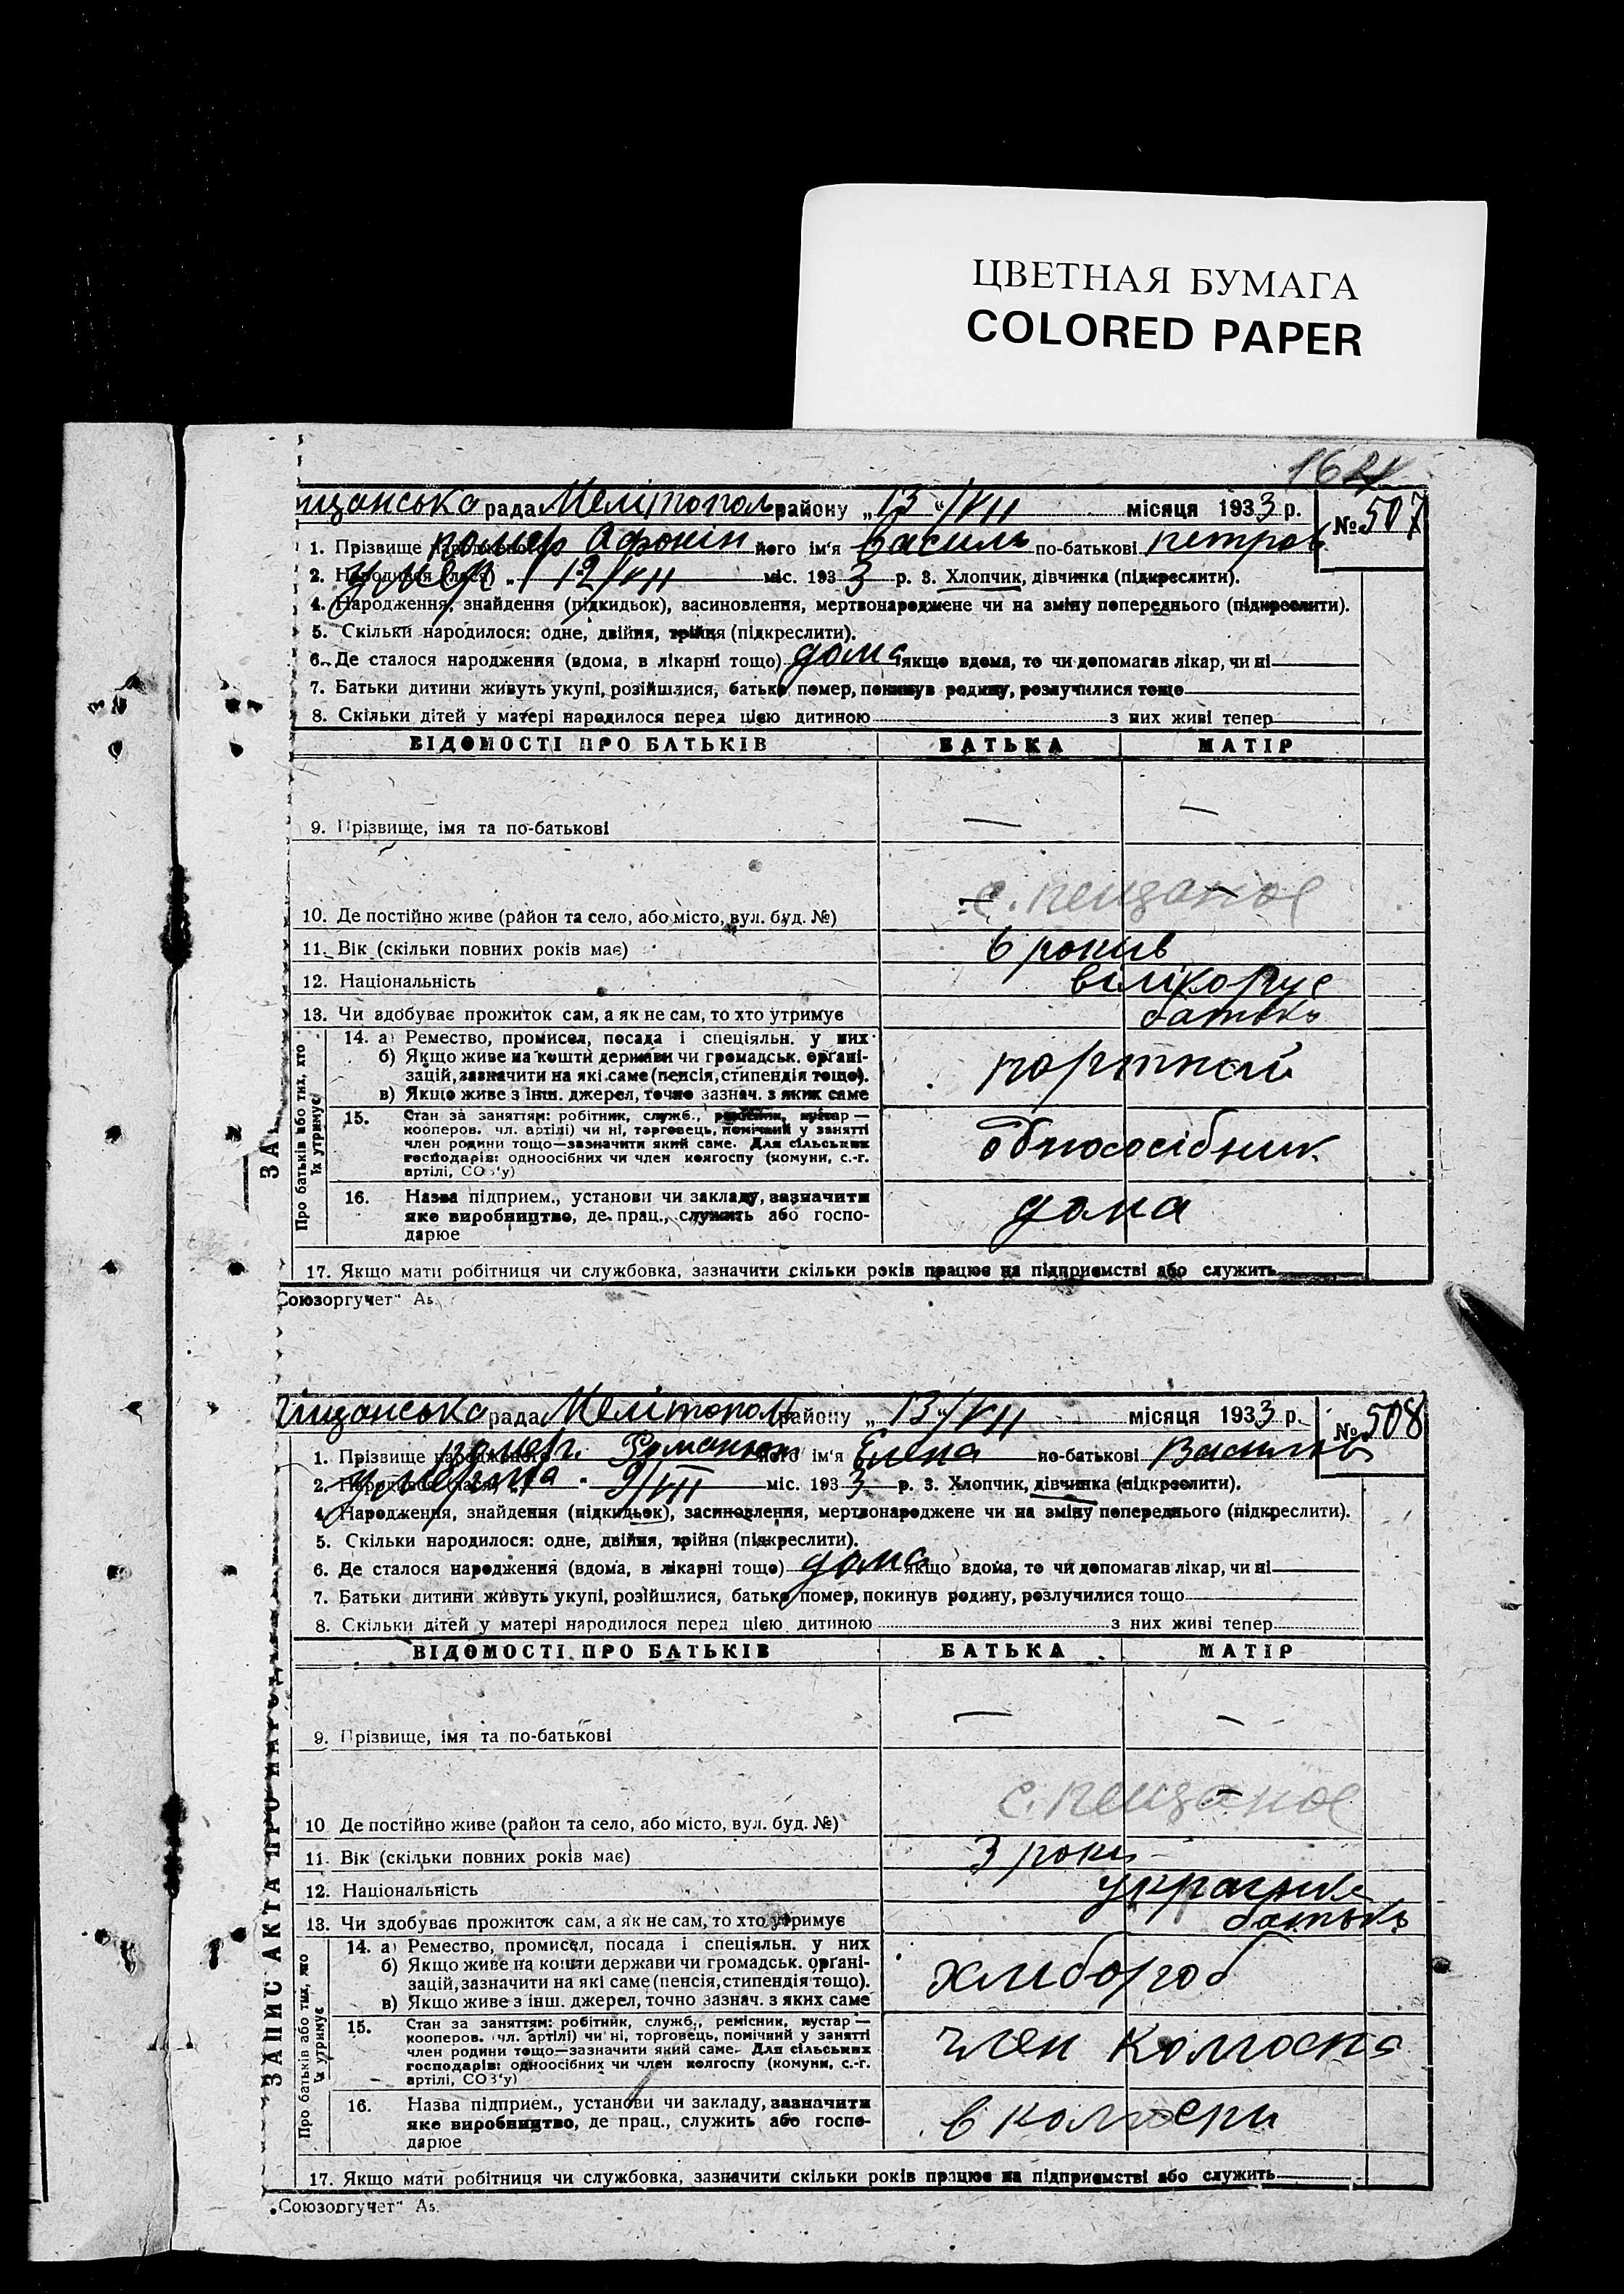 ЦВЕТНАЯ БУМАГА
COLORED PAPER
162
ищанська рада Мелітопол району „13“/VII місяця 1933 р. № 507
1. Прізвище помер Афонін його ім'я Василь по-батькові петров
2. умер 12/VII міс. 1933 р. 3. Хлопчик, дівчинка (підкреслити).
4. Народження, знайдення (підкидьок), засиновлення, мертвонароджене чи на зміну попереднього (підкреслити).
5. Скільки народилося: одне, двійня, трійня (підкреслити).
6. Де сталося народження (вдома, в лікарні тощо) дома якщо вдома, то чи допомагав лікар, чи ні
7. Батьки дитини живуть укупі, розійшлися, батько помер, покинув родину, розлучилися тощо
8. Скільки дітей у матері народилося перед цією дитиною з них живі тепер
ВІДОМОСТІ ПРО БАТЬКІВ БАТЬКА МАТІР
9. Прізвище, імя та по-батькові — —
10. Де постійно живе (район та село, або місто, вул. буд. №) с. пещаное
11. Вік (скільки повних років має) 6 років
12. Національність вілікорус
13. Чи здобуває прожиток сам, а як не сам, то хто утримує батько
Про батьків або тих, хто їх утримує
14. а) Ремество, промисел, посада і спеціяльн. у них
б) Якщо живе на кошти держави чи громадськ. орґані-
зацій, зазначити на які саме (пенсія, стипендія тощо).
в) Якщо живе з інш. джерел, точно зазнач. з яких саме
портной
15. Стан за заняттям: робітник, служб., ремісник, кустар—
кооперов. чл. артілі) чи ні, торговець, помічний у занятті
член родини тощо—зазначити який саме. Для сільських
господарів: одноосібних чи член колгоспу (комуни, с.-г.
артілі, СОЗ'у)
однососібник
16. Назва підприєм., установи чи закладу, зазначити
яке виробництво, де прац., служить або госпо-
дарює
дома
17. Якщо мати робітниця чи службовка, зазначити скільки років працює на підприємстві або служить
Союзоргучет“ А5.
ЗА
пищанська рада Мелітополь району „13“/VII місяця 1933 р. № 508
1. Прізвище помер. його ім'я Елена по-батькові Васильов
2. умерла 9/VII міс. 1933 р. 3. Хлопчик, дівчинка (підкреслити).
4. Народження, знайдення (підкидьок), засиновлення, мертвонароджене чи на зміну попереднього (підкреслити).
5. Скільки народилося: одне, двійня, трійня (підкреслити).
6. Де сталося народження (вдома, в лікарні тощо) дома якщо вдома, то чи допомагав лікар, чи ні
7. Батьки дитини живуть укупі, розійшлися, батько помер, покинув родину, розлучилися тощо
8. Скільки дітей у матері народилося перед цією дитиною з них живі тепер
ВІДОМОСТІ ПРО БАТЬКІВ БАТЬКА МАТІР
9. Прізвище, імя та по-батькові — —
10 Де постійно живе (район та село, або місто, вул. буд. №) с. пещаное
11. Вік (скільки повних років має) 3 роки
12. Національність українка
13. Чи здобуває прожиток сам, а як не сам, то хто утримує батько
Про батьків або тих, хто їх утримує
14. а) Ремество, промисел, посада і спеціяльн. у них
б) Якщо живе на кошти держави чи громадськ. орґані-
зацій, зазначити на які саме (пенсія, стипендія тощо).
в) Якщо живе з інш. джерел, точно зазнач. з яких саме
хлибороб
15. Стан за заняттям: робітник, служб., ремісник, кустар—
кооперов. чл. артілі) чи ні, торговець, помічний у занятті
член родини тощо—зазначити який саме. Для сільських
господарів: одноосібних чи член колгоспу (комуни, с.-г.
артілі, СОЗ'у)
член колгоспа
16. Назва підприєм., установи чи закладу, зазначити
яке виробництво, де прац., служить або госпо-
дарює
в колгоспи
17. Якщо мати робітниця чи службовка, зазначити скільки років працює на підприємстві або служить
„Союзоргучет“ А5.
ЗАПИС АКТА ПРО